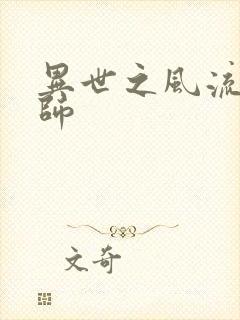 異世之風流
師
文奇